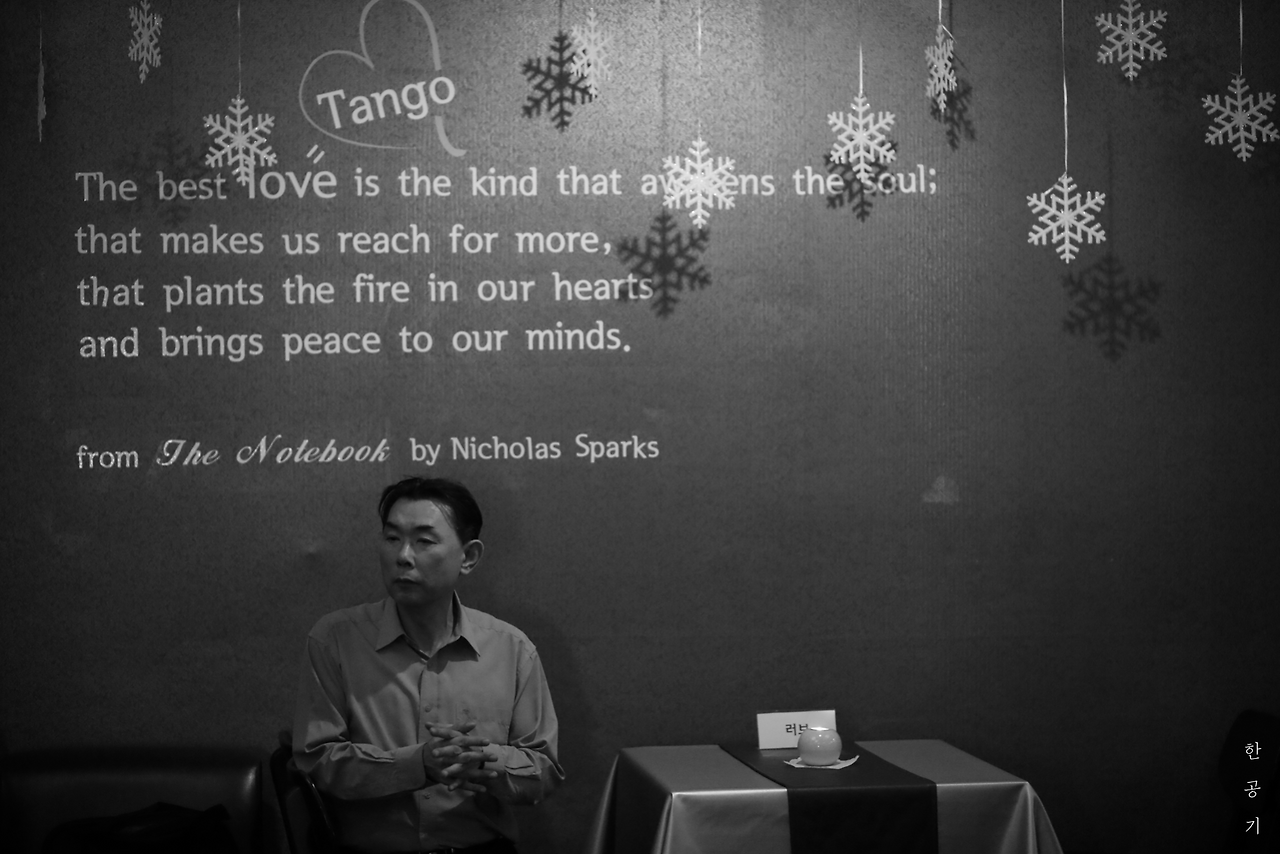 Tango
The best "love" is the kind that awakens the soul;
that makes us reach for more,
that plants the fire in our hearts
and brings peace to our minds.
from The Notebook by Nicholas Sparks
한
공
기